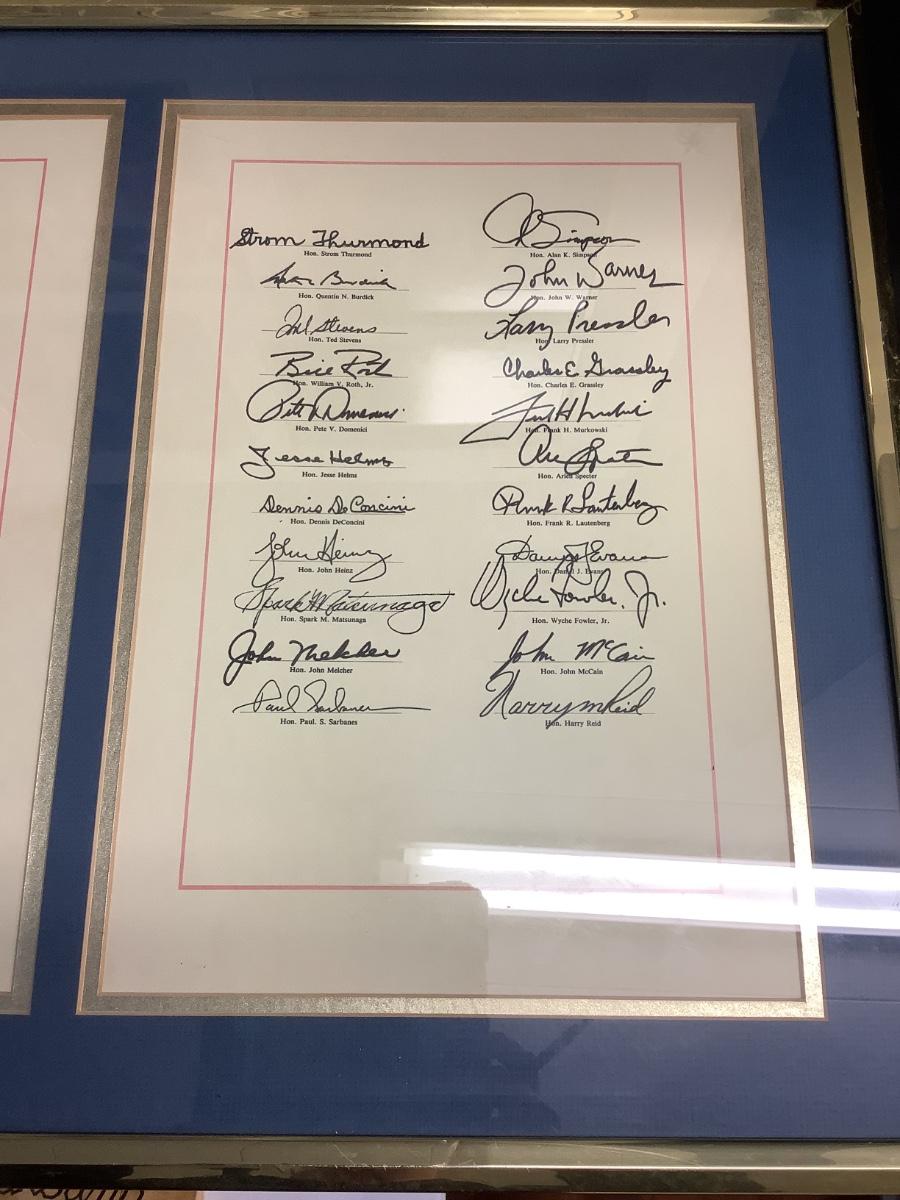 Strom Thurmond
Hon. Strom Thurmond
Burdick
Hon. Quentin N. Burdick
Ted Stevens
Hon. Ted Stevens
Bill Roth
Hon. William V. Roth, Jr.
Pete V Domenici
Hon. Pete V. Domenici
Jesse Helms
Hon. Jesse Helms
Dennis DeConcini
Hon. Dennis DeConcini
John Heinz
Hon. John Heinz
Spark M Matsunaga
Hon. Spark M. Matsunaga
John Melcher
Hon. John Melcher
Paul Sarbanes
Hon. Paul. S. Sarbanes
Al Simpson
Hon. Alan K. Simpson
John Warner
Hon. John W. Warner
Larry Pressler
Hon. Larry Pressler
Charles E Grassley
Hon. Charles E. Grassley
Hon. Frank H. Murkowski
Arlen Specter
Hon. Arlen Specter
Frank R Lautenberg
Hon. Frank R. Lautenberg
Daniel J Evans
Hon. Daniel J. Evans
Wyche Fowler, Jr.
Hon. Wyche Fowler, Jr.
John McCain
Hon. John McCain
Harry M Reid
Hon. Harry Reid